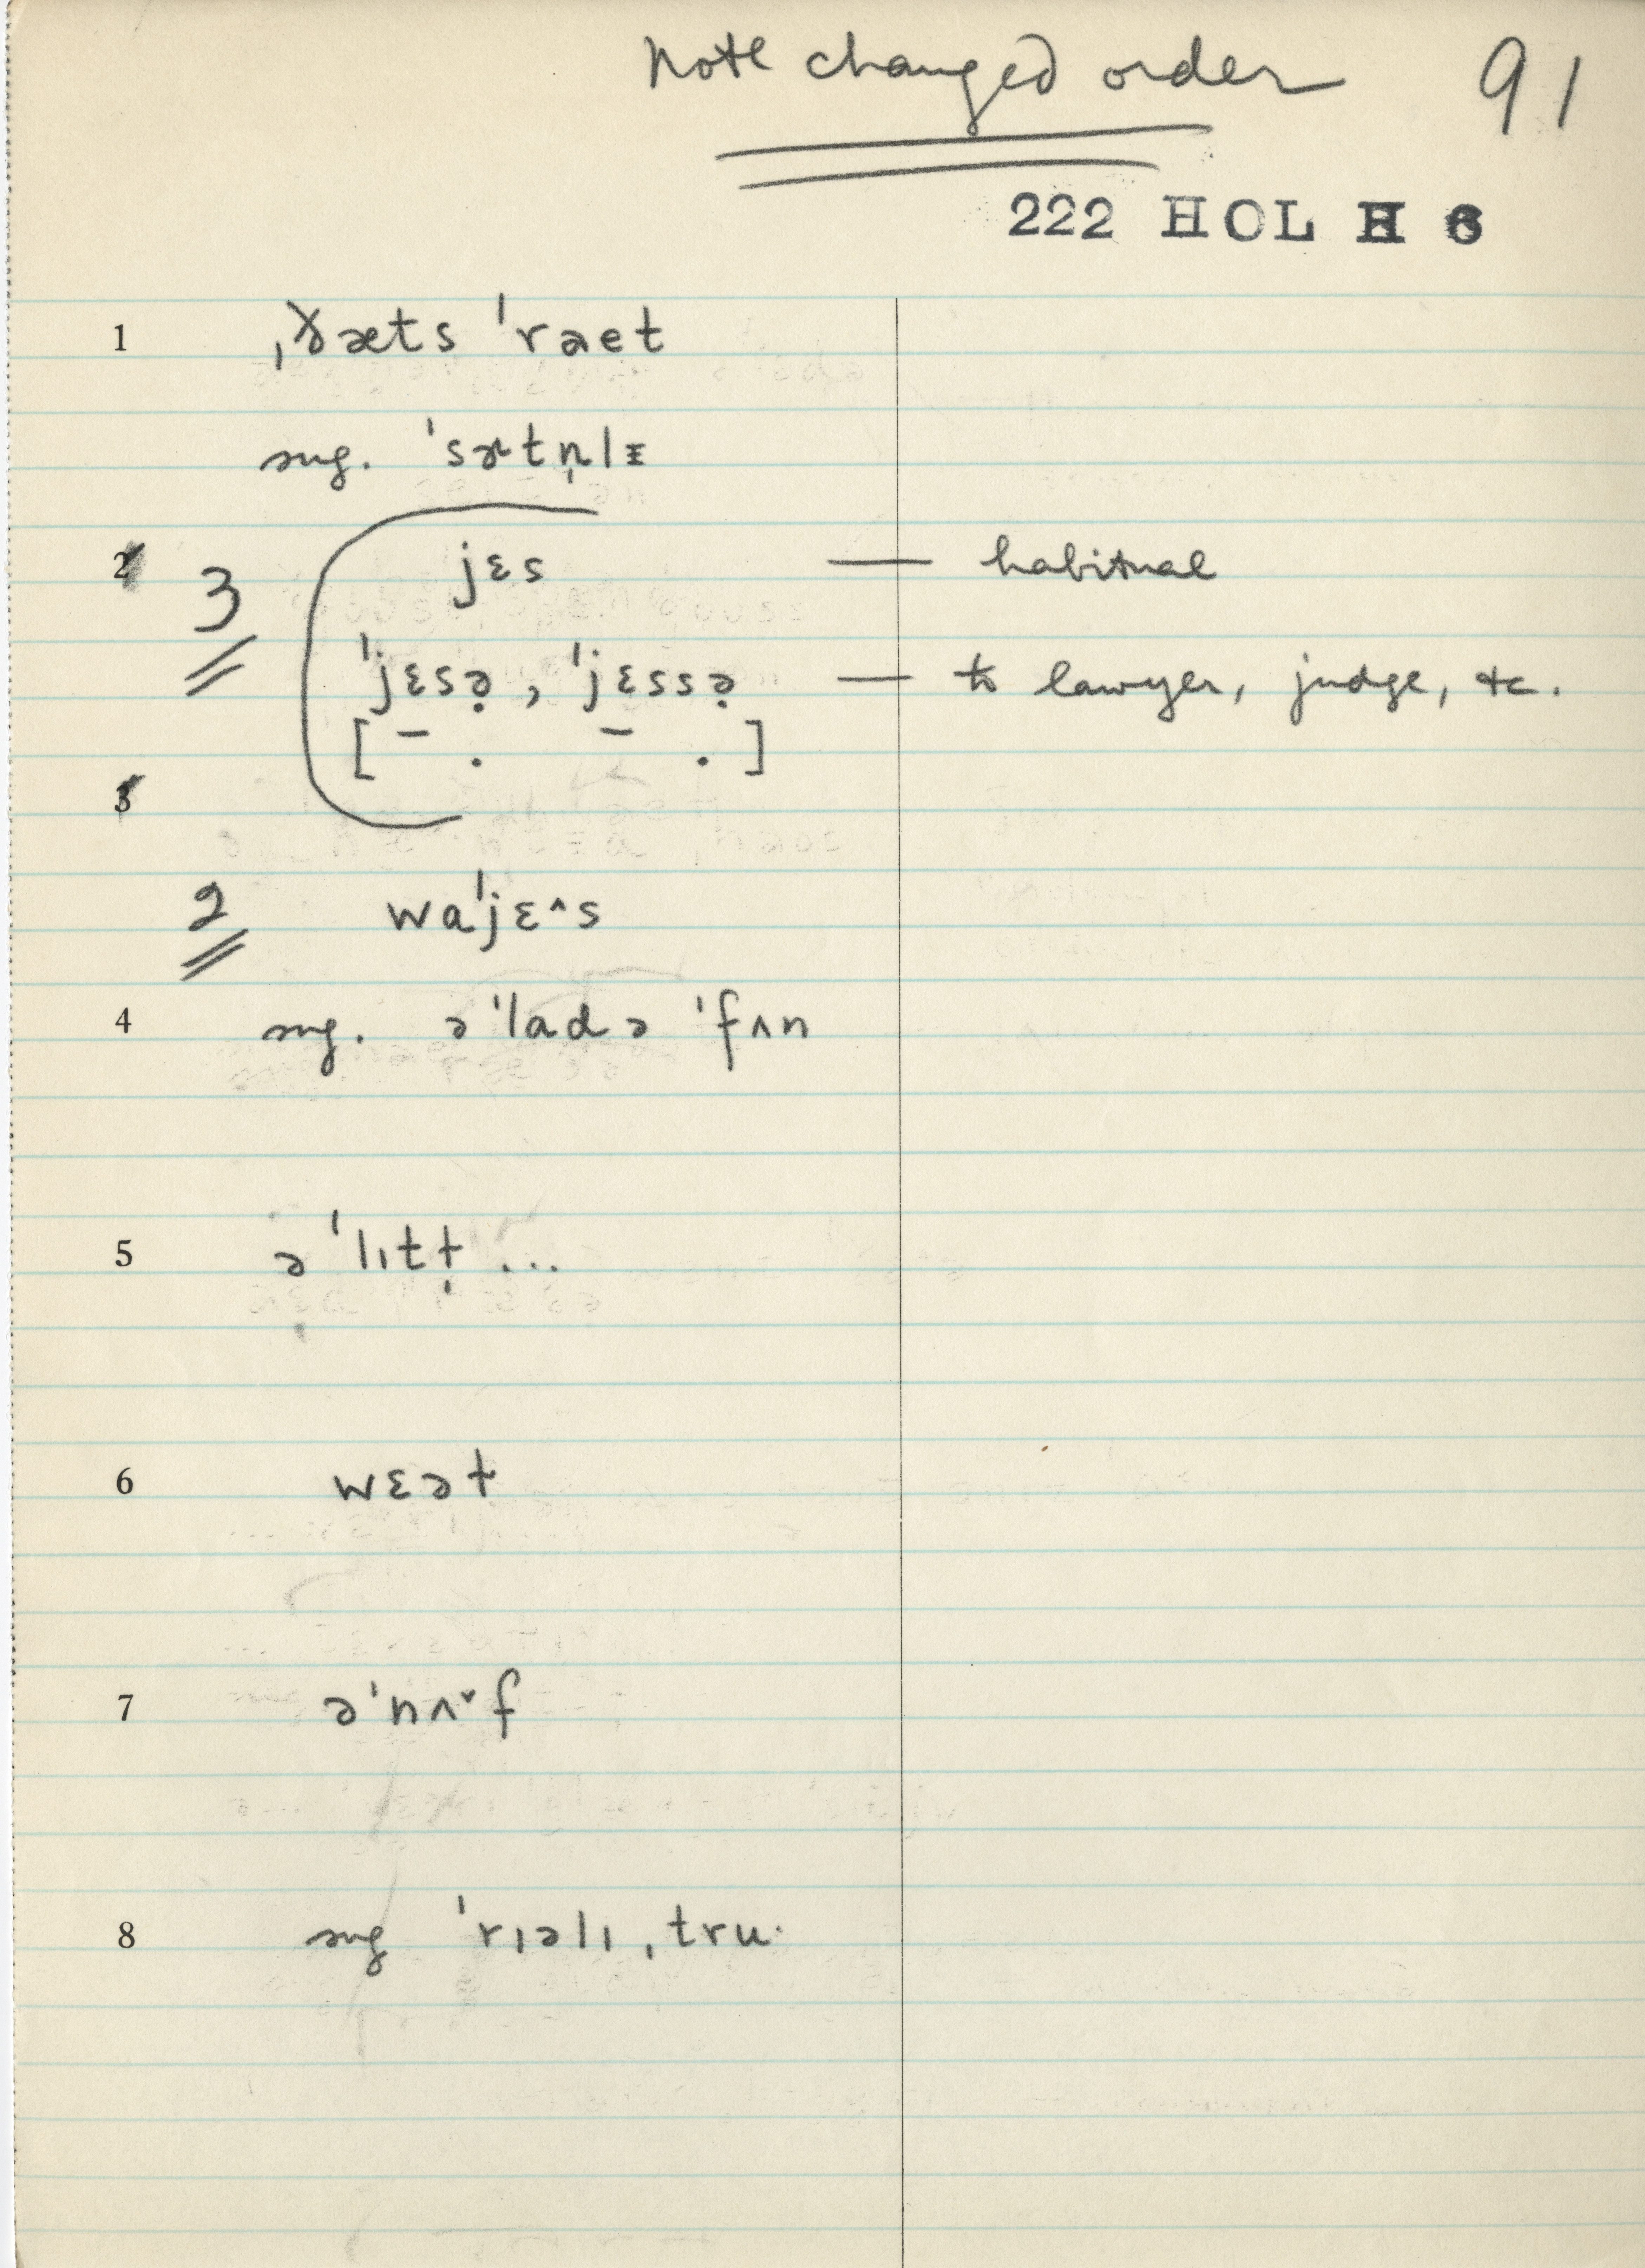 Note changed order 91
222 HOL H 6
1 ˌðæts ˈraet
sug. ˈsɚtn̩lɪ
2 3 jɛs — habitual
ˈjɛsə̣, ˈjɛssə̣ — to lawyer, judge, etc.
[ – . – . ]
3
2 waˈjɛ^s
4 sug. ə ˈladə ˈfʌn
5 ə ˈlɪtɫ̩ ...
6 wɛəɫ
7 əˈnʌ˅f
8 sug ˈrɪəlɪ ˌtru·